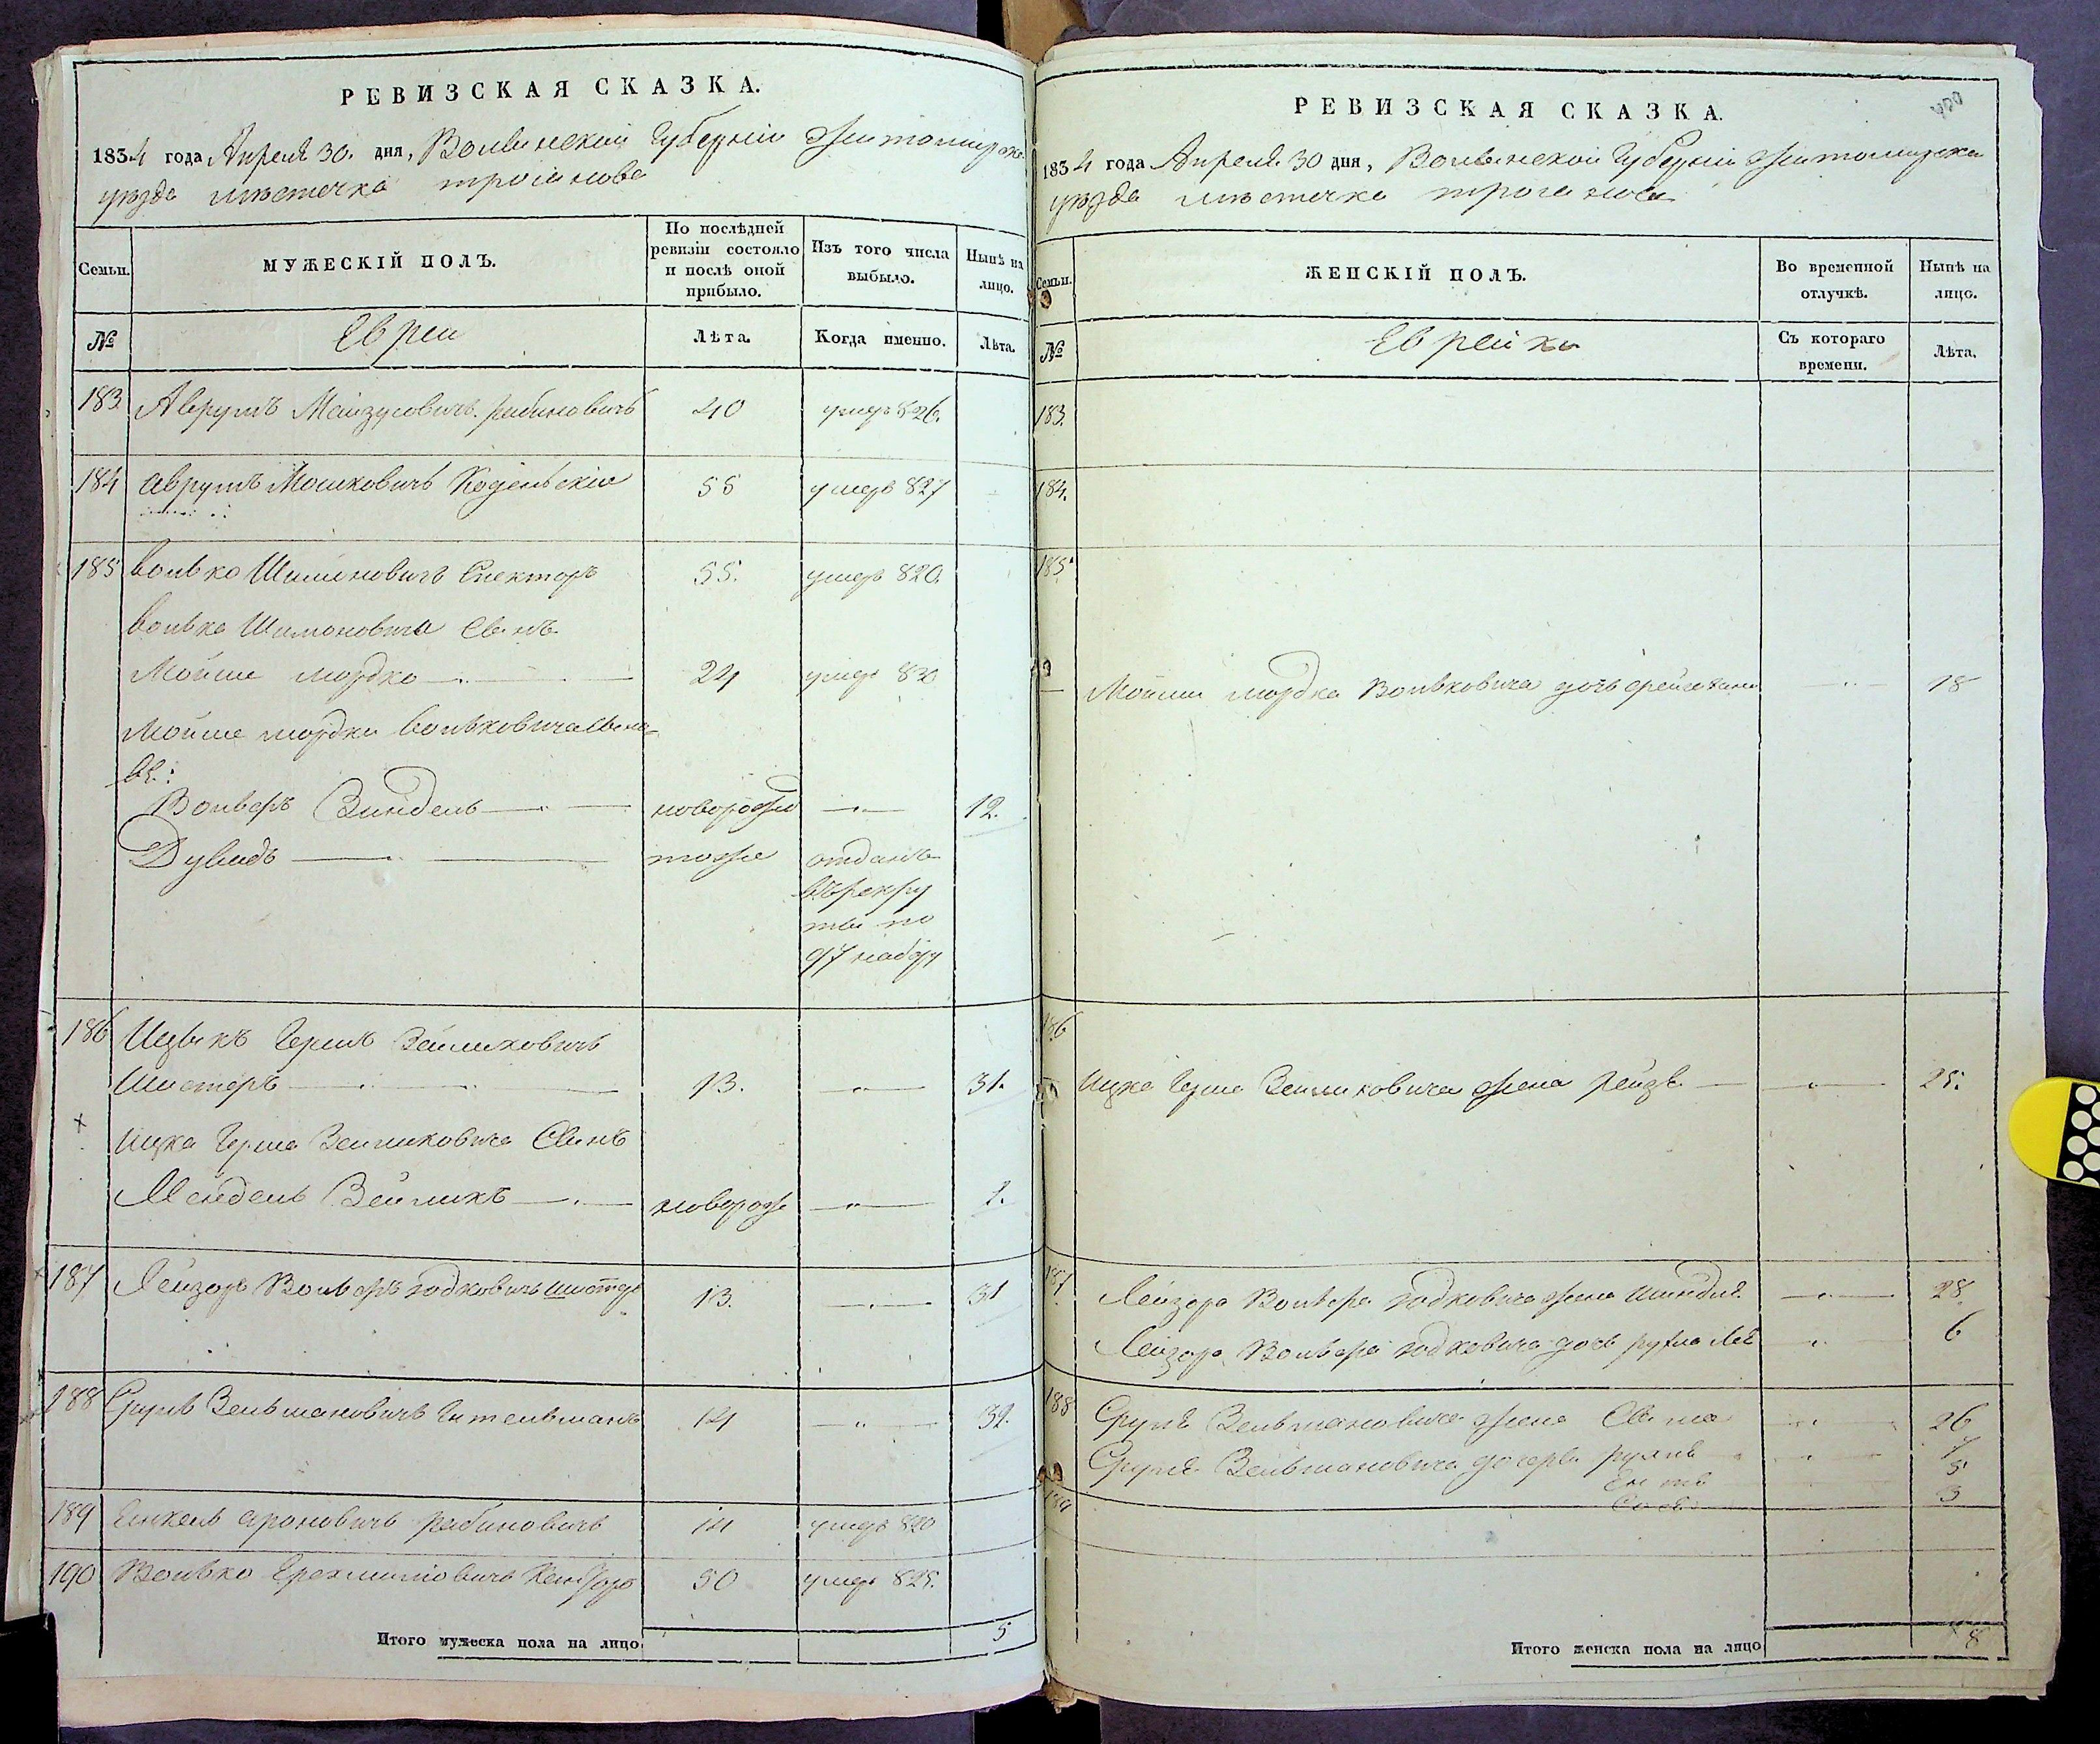 РЕВИЗСКАЯ СКАЗКА.
1834 года Апреля 30. дня, Волынской Губерніи Житомирска
уезда местечка троянова
Семьи. МУЖЕСКІЙ ПОЛЪ. По послѣдней ревизіи состояло и послѣ оной прибыло. Изъ того числа выбыло. Нынѣ на лицо.
№ Евреи Лѣта. Когда именно. Лѣта.
183 Аврумъ Рабиновичъ 40 умеръ 826.
184 Аврумъ Мошковичъ 55 умеръ 827
185 Волько Шимоновичъ Спекторъ 55. умеръ 820.
Волька Шимоновича Сынъ
Мойше мордко 24 умеръ 830
Мойше мордки Вольковича Сыно-
вя:
Вольвъ новорожд 12.
Дувидъ тоже отданъ
въ рекру
ты по
97 набору
186 Ицыкъ Гершъ Зейликовичъ
Шистеръ 13. 31.
Ицка Герша Зейликовича Сынъ
Мендель Зейликъ новорож 1.
187 Лейзоръ Вольвъ Шистеръ 13. 31
188 Срулъ Зельмановичъ Гительманъ 14 32.
189 Янкель Ароновичъ рабиновичъ 14 умеръ 820
190 Волько 50 умеръ 825.
Итого мужеска пола на лицо 5
480
РЕВИЗСКАЯ СКАЗКА.
1834 года Апреля 30 дня, Волынской Губерніи Житомирска
уезда местечка троянова
Семьи. ЖЕНСКІЙ ПОЛЪ. Во временной отлучкѣ. Нынѣ на лицо.
№ Еврейки Съ котораго времени. Лѣта.
183.
184.
185.
Мойши мордка Вольковича дочь 18
186
Ицка Герша Зейликовича жена рейзя 25.
187
Лейзора Вольвера жена Шиндля 28
Лейзора Вольвера дочь рухля Лея 6
188 Сруля Зельмановича жена 26
Сруля Зельмановича дочери рухль 7
5
3
189
Итого женска пола на лицо 8